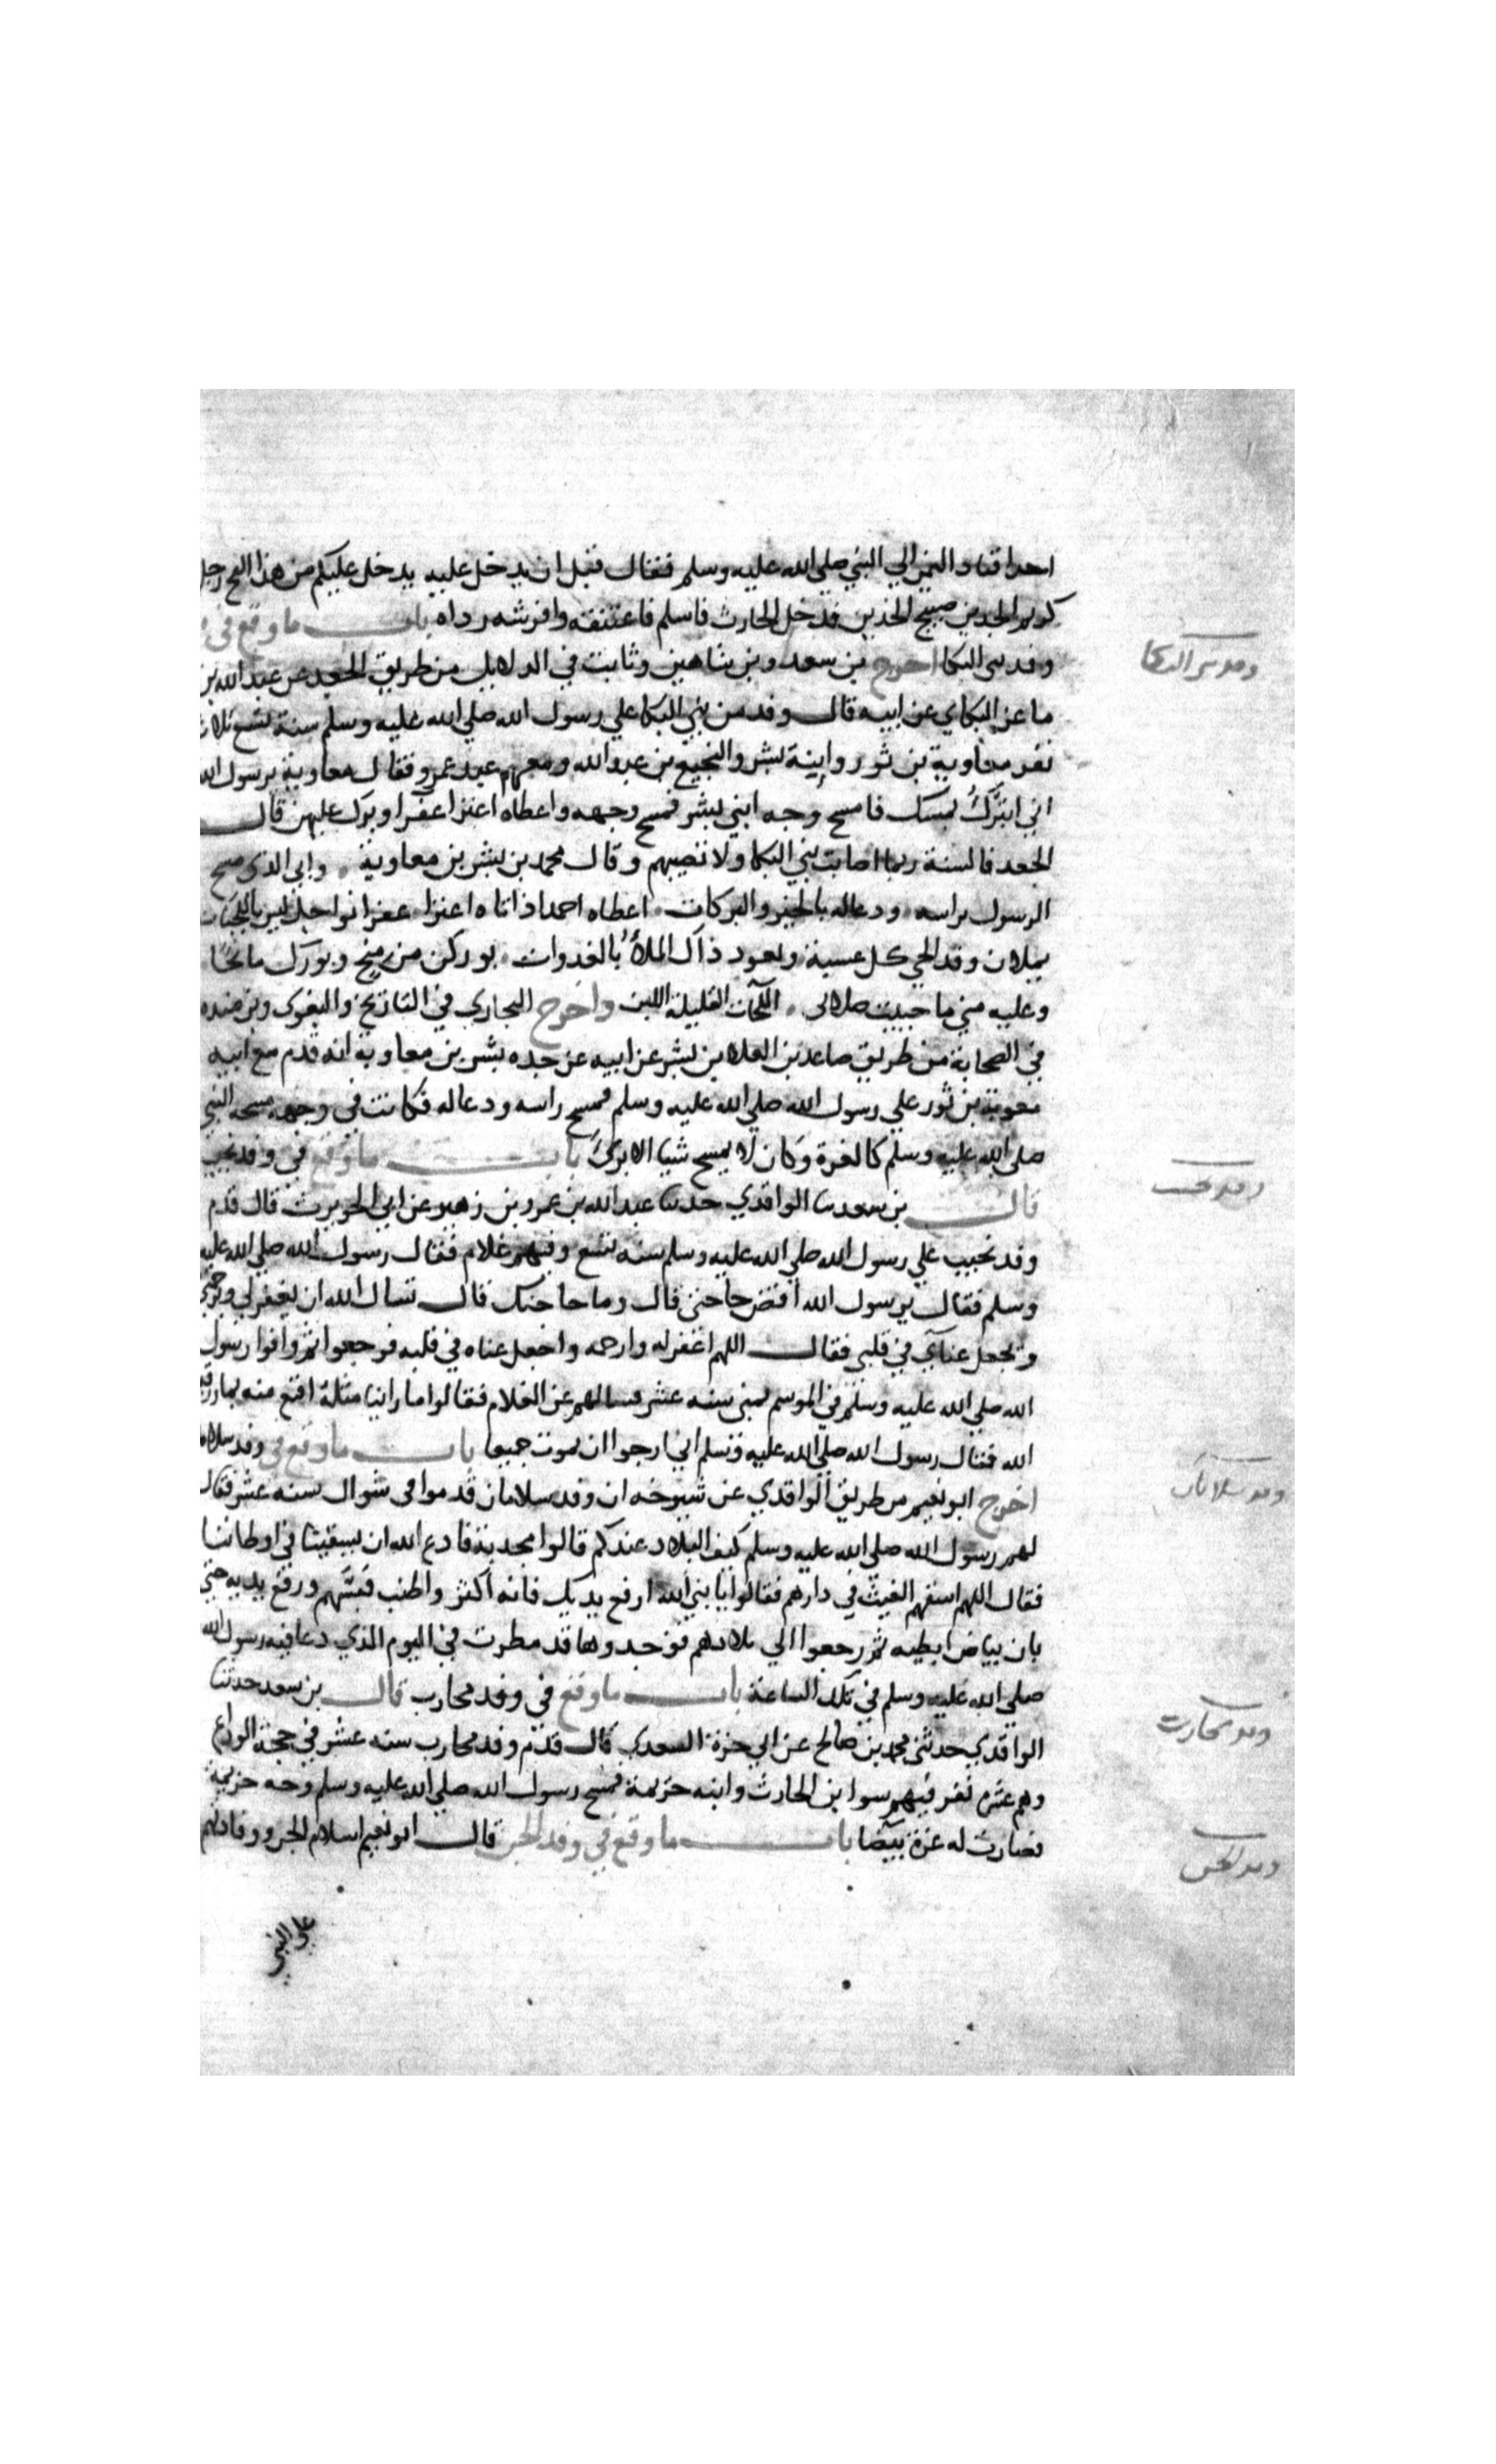 احد اقتاد اليمن الي النبي صلي الله عليه وسلم فقال قبل ان يدخل عليه يدخل عليكم من هذا الفج رجل
كريم الجدين صبيح الخدين فدخل الحارث فاسلم فاعتنقه وافرشه رداه باب ما وقع في
وفد بني البكا اخرج بن سعد وبن شاهين وثابت في الدلايل من طريق الجعد عن عبد الله بن
ماعز البكاي عن ابيه قال وفد من بني البكا علي رسول الله صلي الله عليه وسلم سنة تسع ثلاث
نفر معاوية بن ثور وابنة بشر والنجيع بن عبد الله ومعهم عبد عمرو فقال معاوية يرسول الله
اني اتبرك بمسك فامسح وجه ابني بشر فمسح وجهه واعطاه اعنزا عفرا وبرك عليهن قال
الجعد فالسنة ربما اصابت بني البكا ولا تصيبهم وقال محمد بن بشر بن معاوية وابي الذي مسح
الرسول براسه ودعاله بالخير والبركات اعطاه احمد اذ اتاه اعنزا عفرا نواجل ليس باللجبات
يملان وفد الحي كل عسية ويعود ذاك الملأ بالغدوات بوركن من منح وبورك مانحا
وعليه مني ما حييت صلاتي اللجبات القليلة اللبن واخرج البخاري في التاريخ والبغوي وبن منده
في الصحابة من طريق صاعد بن العلا بن بشر عن ابيه عن جده بشر بن معاوية انه قدم مع ابيه
معوية بن ثور علي رسول الله صلي الله عليه وسلم فمسح راسه ودعاله فكانت في وجهه مسحه النبي
صلي الله عليه وسلم كالغرة وكان لا يمسح شيا الا برئ باب ما وقع في وفد تجيب
قال بن سعد سا الواقدي حدثنا عبد الله بن عمرو بن زهير عن ابي الحويرث قال قدم
وفد تجيب علي رسول الله صلي الله عليه وسلم سنه تسع وفيهم غلام فقال رسول الله صلي الله عليه
وسلم فقال يرسول الله اقض حاجتي قال وما حاجتك قال تسال الله ان يغفر لي ويرحمني
وتجعل غناي في قلبي فقال اللهم اغفر له وارحمه واجعل غناه في قلبه فرجعوا ثم وافوا رسول
الله صلي الله عليه وسلم في الموسم بمني سنه عشر فسالهم عن الغلام فقالوا ما راينا مثله اقنع منه بما رزقه
الله فقال رسول الله صلي الله عليه وسلم اني ارجوا ان يموت جميعا باب ما وقع في وفد سلامان
اخرج ابو نعيم من طريق الواقدي عن شيوخه ان وفد سلامان قدموا في شوال سنه عشر فقال
لهم رسول الله صلي الله عليه وسلم كيف البلاد عندكم قالوا مجدبة فادع الله ان يسقينا في اوطاننا
فقال اللهم اسقهم الغيث في دارهم فقالوا يا نبي الله ارفع يديك فانه اكثر واطنب فتبسم ورفع يديه حتي
بان بياض ابطيه ثم رجعوا الي بلادهم فوجدوها قد مطرت في اليوم الذي دعا فيه رسول الله
صلي الله عليه وسلم في تلك الساعة باب ما وقع في وفد محارب قال بن سعد حدثنا
الواقدي حدثني محمد بن صالح عن ابي حزة السعدي قال قدم وفد محارب سنه عشر في حجة الوداع
وهم عشرة نفر فيهم سوا بن الحارث وابنه خزيمة فمسح رسول الله صلي الله عليه وسلم وجه خزيمة
فصارت له غرة بيضا باب ما وقع في وفد الجن قال ابو نعيم اسلام الجن ووفادتهم
علي النبي
وفد بني البكا
وفد تجيب
وفد سلامان
وفد محارب
وفد الجن